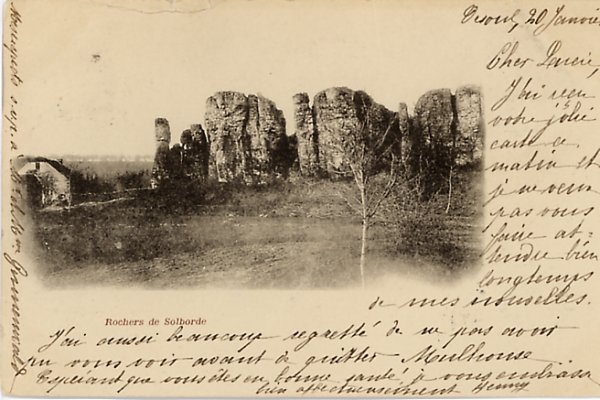 Vesoul, 20 Janvier
Cher Lucie,
J'ai reçu
votre jolie
carte ce
matin et
je ne veux
pas vous
faire at-
tendre bien
longtemps
de mes nouvelles.
Rochers de Solborde
J'ai aussi beaucoup regretté de ne pas avoir
pu vous voir avant de quitter Mulhouse
Espérant que vous êtes en bonne santé je vous embrasse
bien affectueusement Henny